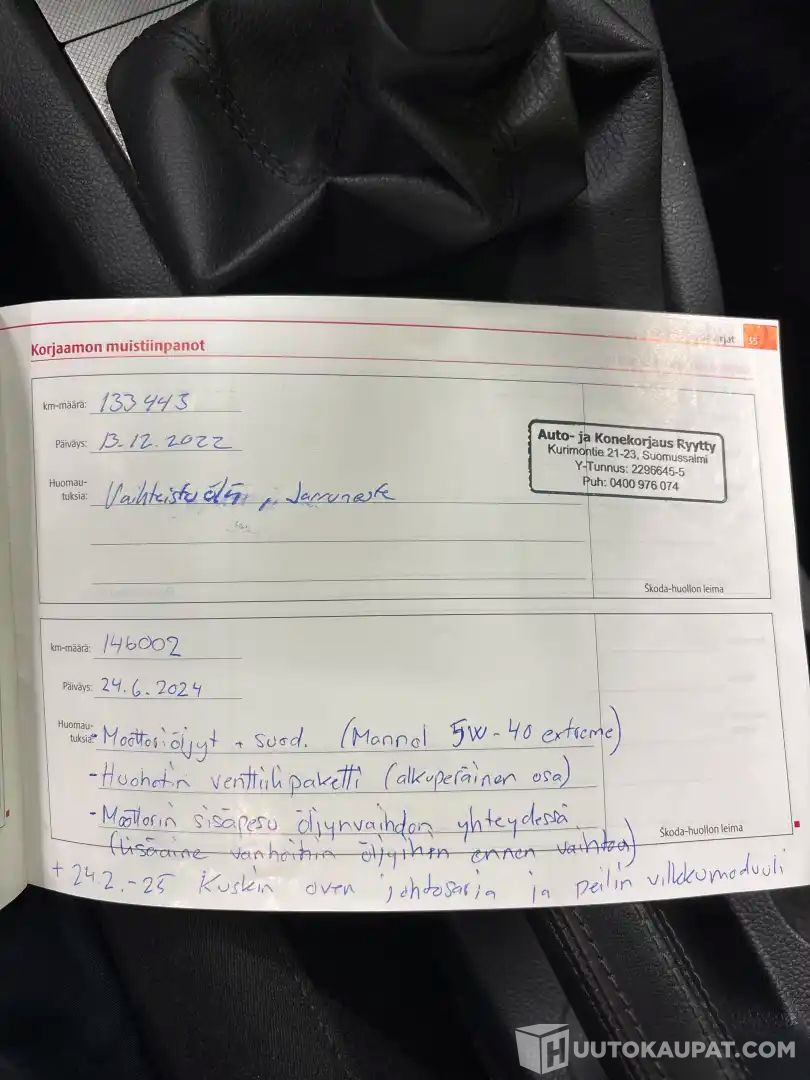 55
Korjaamon muistiinpanot
km-määrä: 133 443
Päiväys: 13.12.2022
Huomau-
tuksia: Vaihteistoöljy, Jarruneste
Auto- ja Konekorjaus Ryytty
Kurimontie 21-23, Suomussalmi
Y-Tunnus: 2296645-5
Puh: 0400 976 074
Škoda-huollon leima
km-määrä: 146002
Päiväys: 24.6.2024
Huomau-
tuksia: - Moottoriöljyt + suod. (Mannol 5W-40 extreme)
- Huohotin venttiilipaketti (alkuperäinen osa)
- Moottorin sisäpesu öljynvaihdon yhteydessä
(lisäaine vanhoihin öljyihin ennen vaihtoa)
Škoda-huollon leima
+ 24.2.-25 Kuskin oven johtosarja ja peilin vilkkumoduuli
HUUTOKAUPAT.COM